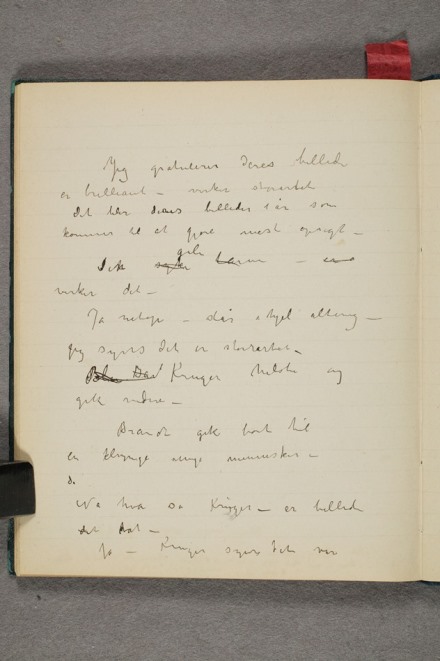 Jeg gratulerer Deres billede
er brilliant – virker storartet
det blir Deres billeder i år som
kommer til at gjøre mest opsigt –
gale
virker det –
Ja netop – alting –
jeg synes det er storartet –
Kruger hilste og
gik videre –
Brandt gik bort til
en klynge unge mennesker –
Na hva sa Krüger – er billede
Ja – Kruger synes det var